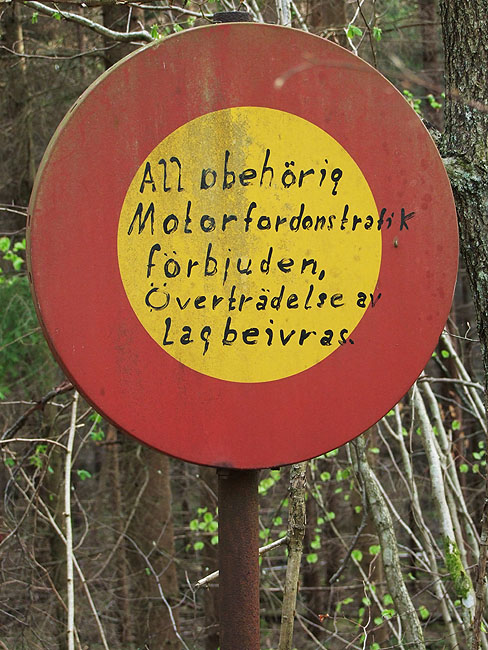 All obehörig
Motorfordonstrafik
förbjuden,
Överträdelse av
Lag beivras.